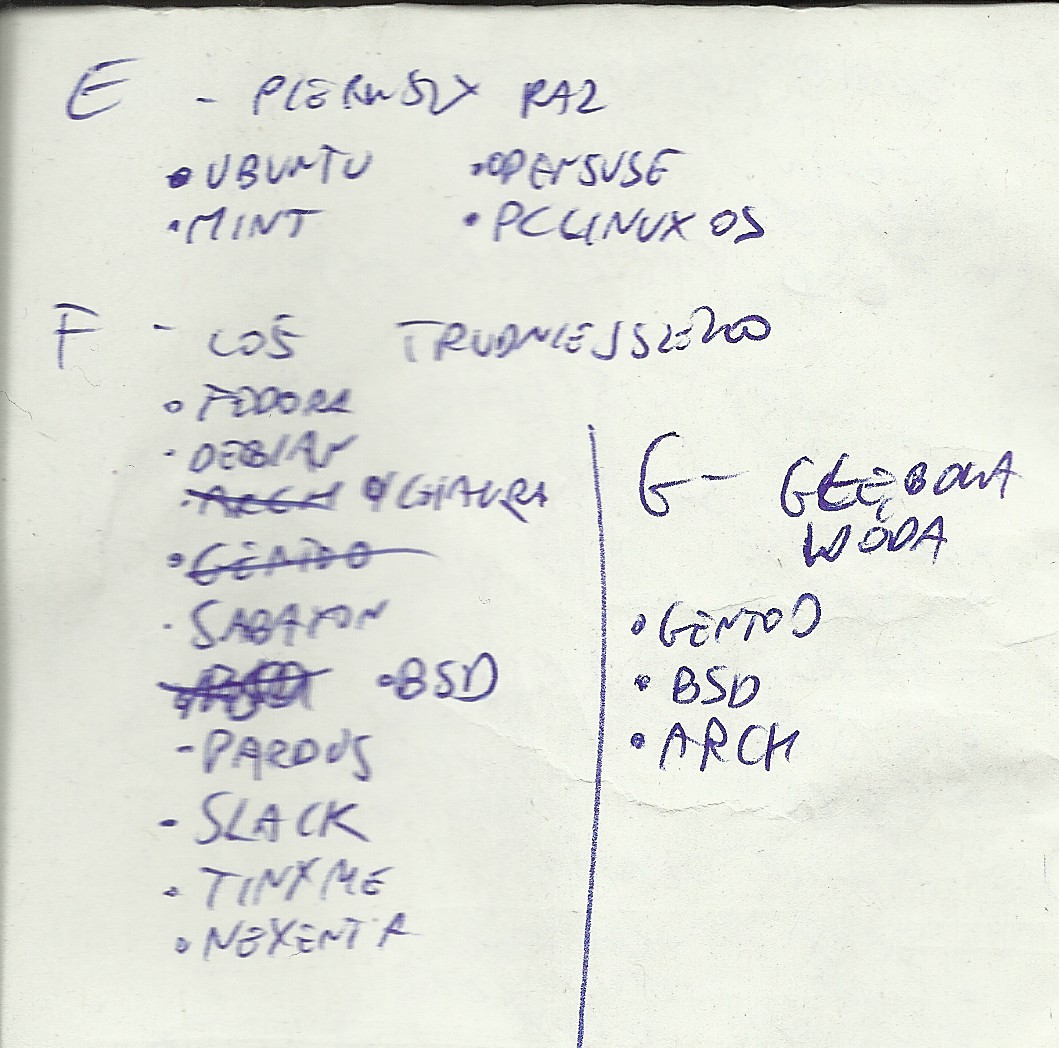 E - PIERWSZY RAZ
• UBUNTU • OPENSUSE
• MINT • PCLINUXOS
F - COŚ TRUDNIEJSZEGO
• FEDORA
• DEBIAN
• ARCH
• GENTOO
• SABAYON
• BSD
- PARDUS
- SLACK
• TINYME
• NEXENTA
G - GŁĘBOKA
WODA
• GENTOO
• BSD
• ARCH